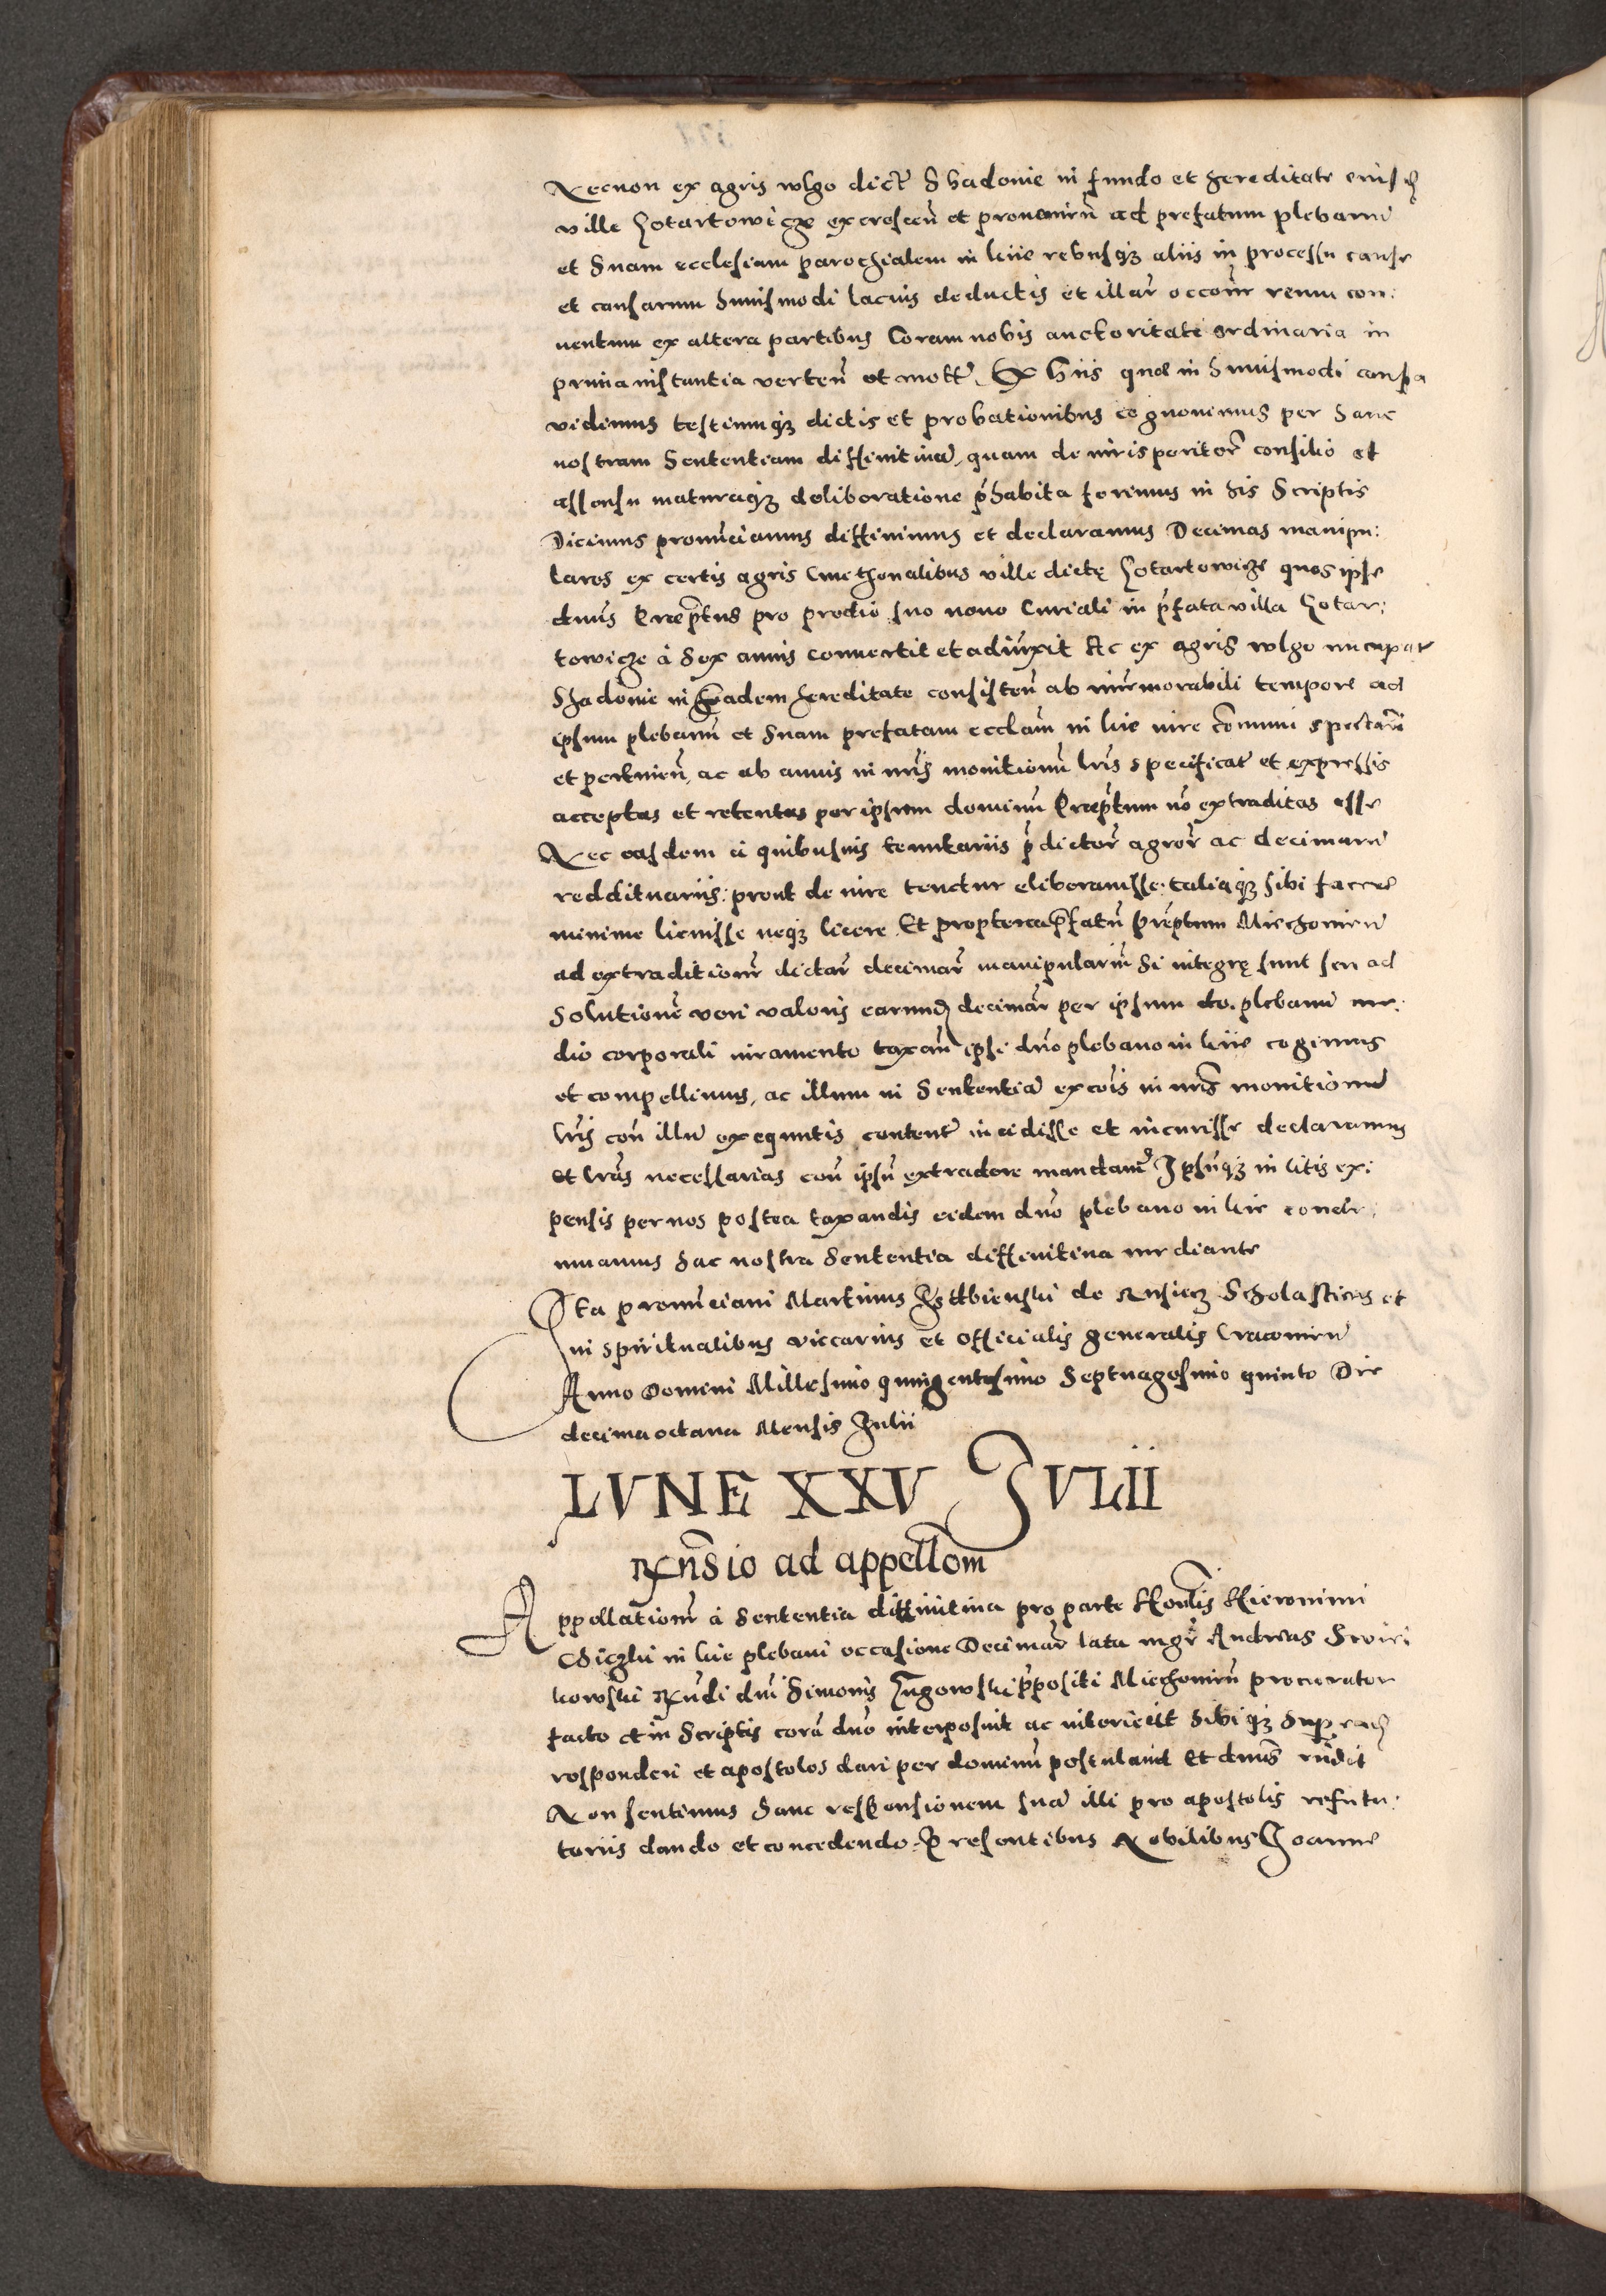 Necnon ex agris wlgo dict Shadonie in fundo et hereditate eiusd
ville Kotartowicze excrescen et provenien ad prefatum plebanu
et Suam ecclesiam parochialem in hiis rebusq3 aliis in processu cause
et causarum huiusmodi lacius deductis et illar occone reum con:
ventum ex altera partibus Coram nobis auctoritate ordinaria in
prima instantia verten et mott. Ex hiis que in huiusmodi causa
vidimus testiumq3 dictis et probationibus cognovimus per hanc
nostram Sententiam diffinitiva, quam de iurisperitor consilio et
assensu maturaq3 deliberatione phabita ferimus in his Scriptis
Dicimus pronuciamus diffinimus et declaramus Decimas manipu:
lares ex certis agris Cmethonalibus ville dictę Kotartowicze quos ipse
dnus Preptus pro predio suo novo Curiali in pfata villa Kotar:
towicze à Sex annis convertit et adiuxit Ac ex agris wlgo nucupat
Shadonie in eadem hereditate consisten ab immemorabili tempore ad
ipsum plebanu et Suam prefatam eccliam in lite iure comuni spectare
et pertinen, ac ab annis in nris monitionu lris specificat et expressis
acceptas et retentas per ipsum dominu Preptum no extraditas esse
Nec easdem a quibusvis tenutariis pdictor agror ac decimaru
reddituariis: prout de iure tenetur eliberavisse: taliaq3 sibi facere
minime licuisse neq3 licere Et propterea pfatu Preptum Miechovien
ad extraditione dictar decimar manipulariu Si integrę sunt seu ad
Solutione veri valoris earund decimar per ipsum do. plebanu me:
dio corporali iuramento taxan ipsi dno plebano in lite cogimus
et compellimus, ac illum in Sententia excois in nris monitionu
lris con illu exequutis content incidisse et incurisse declaramus
et lras necessarias con ipsu extradere mandam9 Ipsuq3 in litis ex:
pensis per nos postea taxandis eidem dno plebano in lite conde:
mnamus hac nostra Sententia diffinitiva mediante
Ita pronuciavi Martinus Izdbienski de Rusiecz Scholasticus et
in spiritualibus viccarius et officialis generalis Cracovien
Anno Domini Millesimo quingentesimo Septuagesimo quinto Die
decima octava Mensis Julii
LVNE XXV JVLII
Rnsio ad appellom
Appellatione à Sententia diffinitiva pro parte Honlis Hieronimi
in lite plebani occasione Decimar lata mgr Andreas Swiri
kowski Rndi dni Simonis Lugowski ppositi Miechovien procurator
facto et in Scriptis cora dno interposuit ac interiecit sibiq3 Supread
responderi et apostolos dari per dominu postulavit Et dnus rndit
Non sentimus hanc responsionem sua illi pro apostolis refuta:
toriis dando et concedendo. Presentibus Nobilibus Joanne